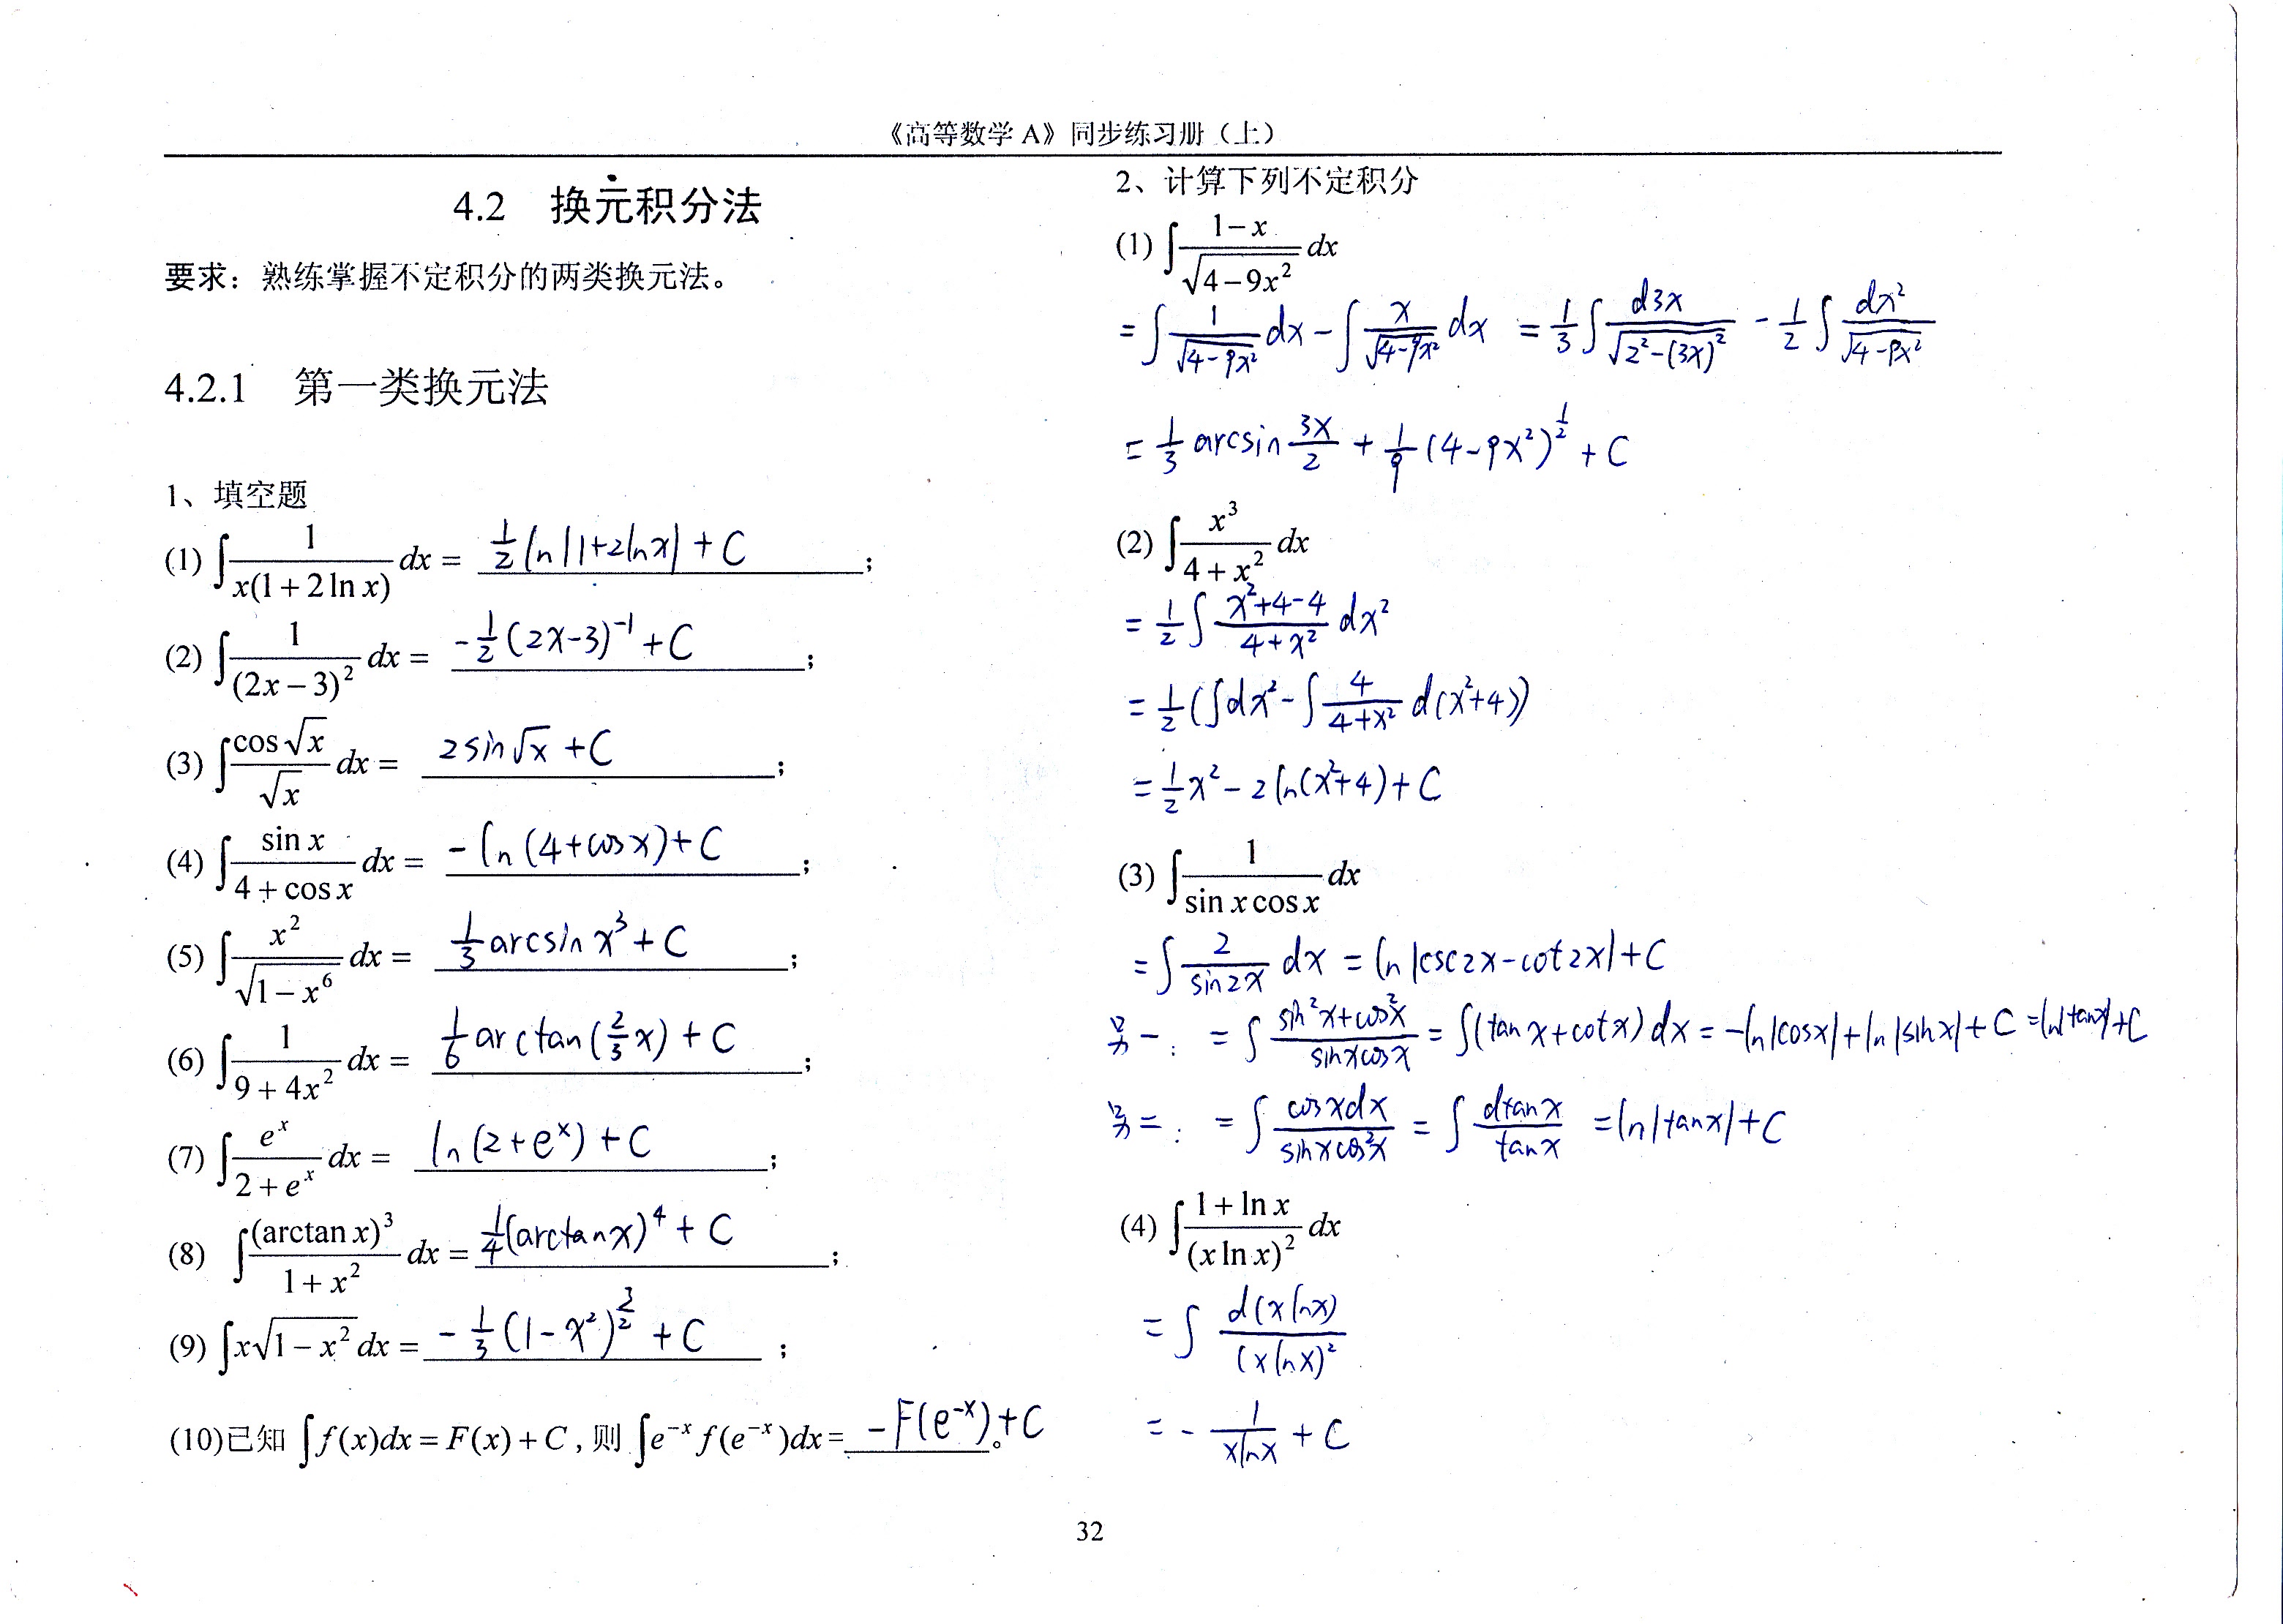 《高等数学 A》同步练习册（上）
4.2 换元积分法
要求：熟练掌握不定积分的两类换元法。
4.2.1 第一类换元法
1、填空题
(1) ∫ 1/(x(1+2 ln x)) dx = 1/2 ln|1+2lnx| + C ;
(2) ∫ 1/(2x−3)² dx = -1/2 (2x-3)⁻¹ + C ;
(3) ∫ cos√x/√x dx = 2sin√x + C ;
(4) ∫ sin x/(4+cos x) dx = -ln(4+cosx) + C ;
(5) ∫ x²/√(1−x⁶) dx = 1/3 arcsin x³ + C ;
(6) ∫ 1/(9+4x²) dx = 1/6 arctan(2/3 x) + C ;
(7) ∫ eˣ/(2+eˣ) dx = ln(2+eˣ) + C ;
(8) ∫ (arctan x)³/(1+x²) dx = 1/4 (arctanx)⁴ + C ;
(9) ∫ x√(1−x²) dx = -1/3 (1-x²)^(3/2) + C ;
(10)已知 ∫ f(x)dx = F(x) + C , 则 ∫ e⁻ˣ f(e⁻ˣ)dx = -F(e⁻ˣ)+C 。
2、计算下列不定积分
(1) ∫ (1−x)/√(4−9x²) dx
= ∫ 1/√(4-9x²) dx - ∫ x/√(4-9x²) dx = 1/3 ∫ d3x/√(2²-(3x)²) - 1/2 ∫ dx²/√(4-9x²)
= 1/3 arcsin 3x/2 + 1/9 (4-9x²)^(1/2) + C
(2) ∫ x³/(4+x²) dx
= 1/2 ∫ (x²+4-4)/(4+x²) dx²
= 1/2 (∫dx² - ∫ 4/(4+x²) d(x²+4))
= 1/2 x² - 2ln(x²+4) + C
(3) ∫ 1/(sin x cos x) dx
= ∫ 2/sin2x dx = ln|csc2x-cot2x| + C
另一: = ∫ (sin²x+cos²x)/(sinxcosx) = ∫(tanx+cotx)dx = -ln|cosx|+ln|sinx|+C = ln|tanx|+C
另二: = ∫ cosxdx/(sinxcos²x) = ∫ dtanx/tanx = ln|tanx|+C
(4) ∫ (1+ln x)/(x ln x)² dx
= ∫ d(xlnx)/(xlnx)²
= - 1/(xlnx) + C
32